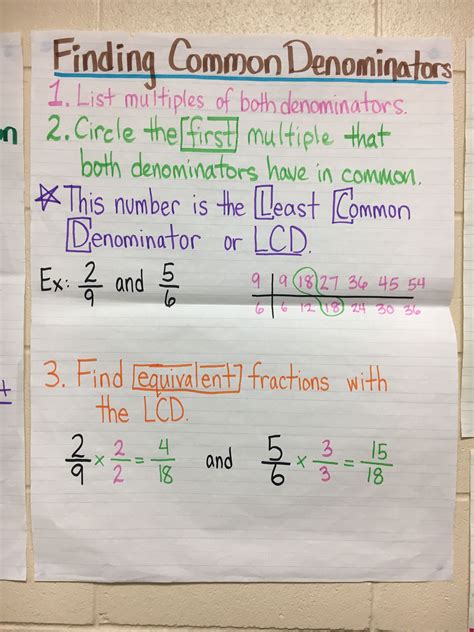 Finding Common Denominators
1. List multiples of both denominators.
2. Circle the first multiple that
both denominators have in common.
☆ This number is the Least Common
Denominator or LCD.
Ex: 2/9 and 5/6
9 | 9 18 27 36 45 54
6 | 6 12 18 24 30 36
3. Find equivalent fractions with
the LCD.
2/9 × 2/2 = 4/18 and 5/6 × 3/3 = 15/18
n